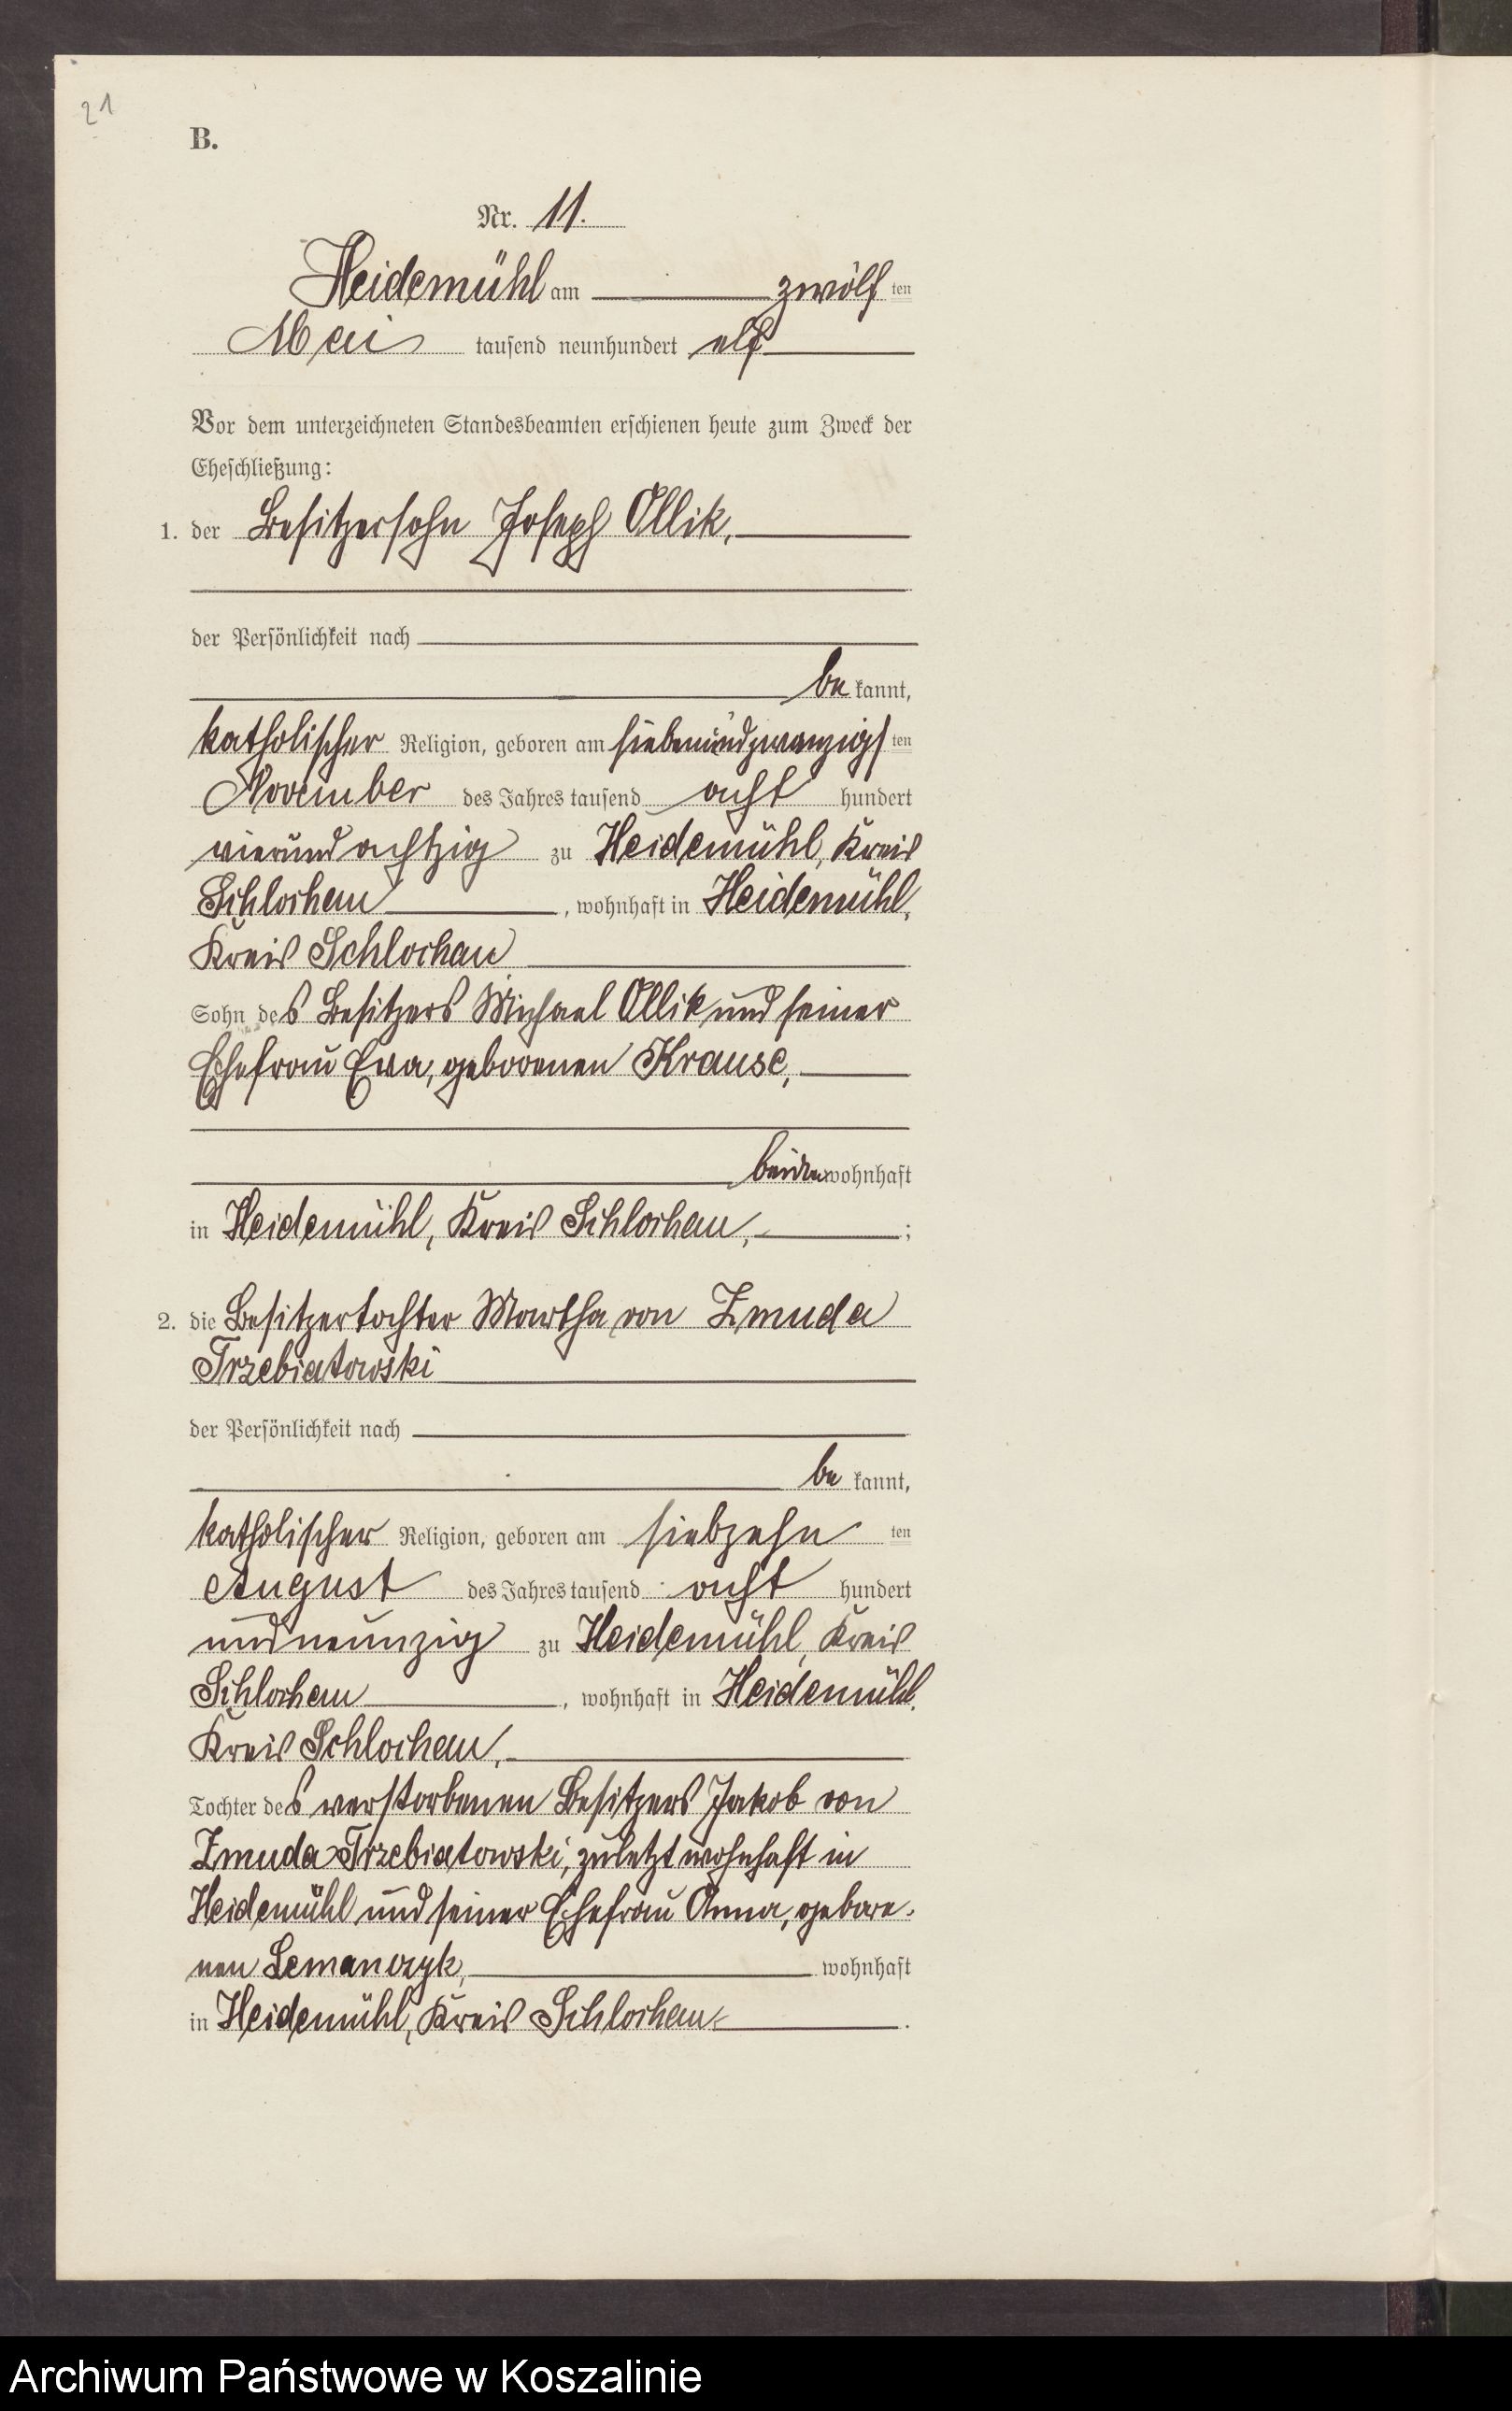 21
B.
Nr. 11.
Heidemühl am zwölf ten
Mai tausend neunhundert elf
Vor dem unterzeichneten Standesbeamten erschienen heute zum Zweck der
Eheschließung:
1. der Besitzersohn Joseph Ollik,
der Persönlichkeit nach
be kannt,
katholischer Religion, geboren am siebenundzwanzigs ten
November des Jahres tausend acht hundert
vierundachtzig zu Heidemühl, Kreis
Schlochau, wohnhaft in Heidemühl,
Kreis Schlochau
Sohn des Besitzers Michael Ollik und seiner
Ehefrau Eva, geborenen Krause,
beide wohnhaft
in Heidemühl, Kreis Schlochau,;
2. die Besitzertochter Martha von Zmuda
Trzebiatowski
der Persönlichkeit nach
be kannt,
katholischer Religion, geboren am siebzehn ten
August des Jahres tausend acht hundert
undneunzig zu Heidemühl, Kreis
Schlochau, wohnhaft in Heidemühl,
Kreis Schlochau,
Tochter des verstorbenen Besitzers Jakob von
Zmuda Trzebiatowski, zuletzt wohnhaft in
Heidemühl und seiner Ehefrau Anna, gebore-
nen Lemanczyk, wohnhaft
in Heidemühl, Kreis Schlochau.
Archiwum Państwowe w Koszalinie